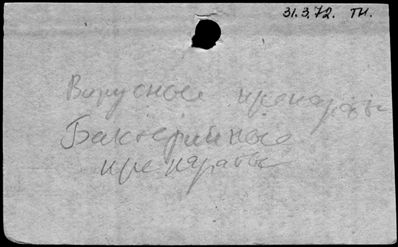 31.3.72. ТИ.
Вирусные препараты
Бактерийные
препараты